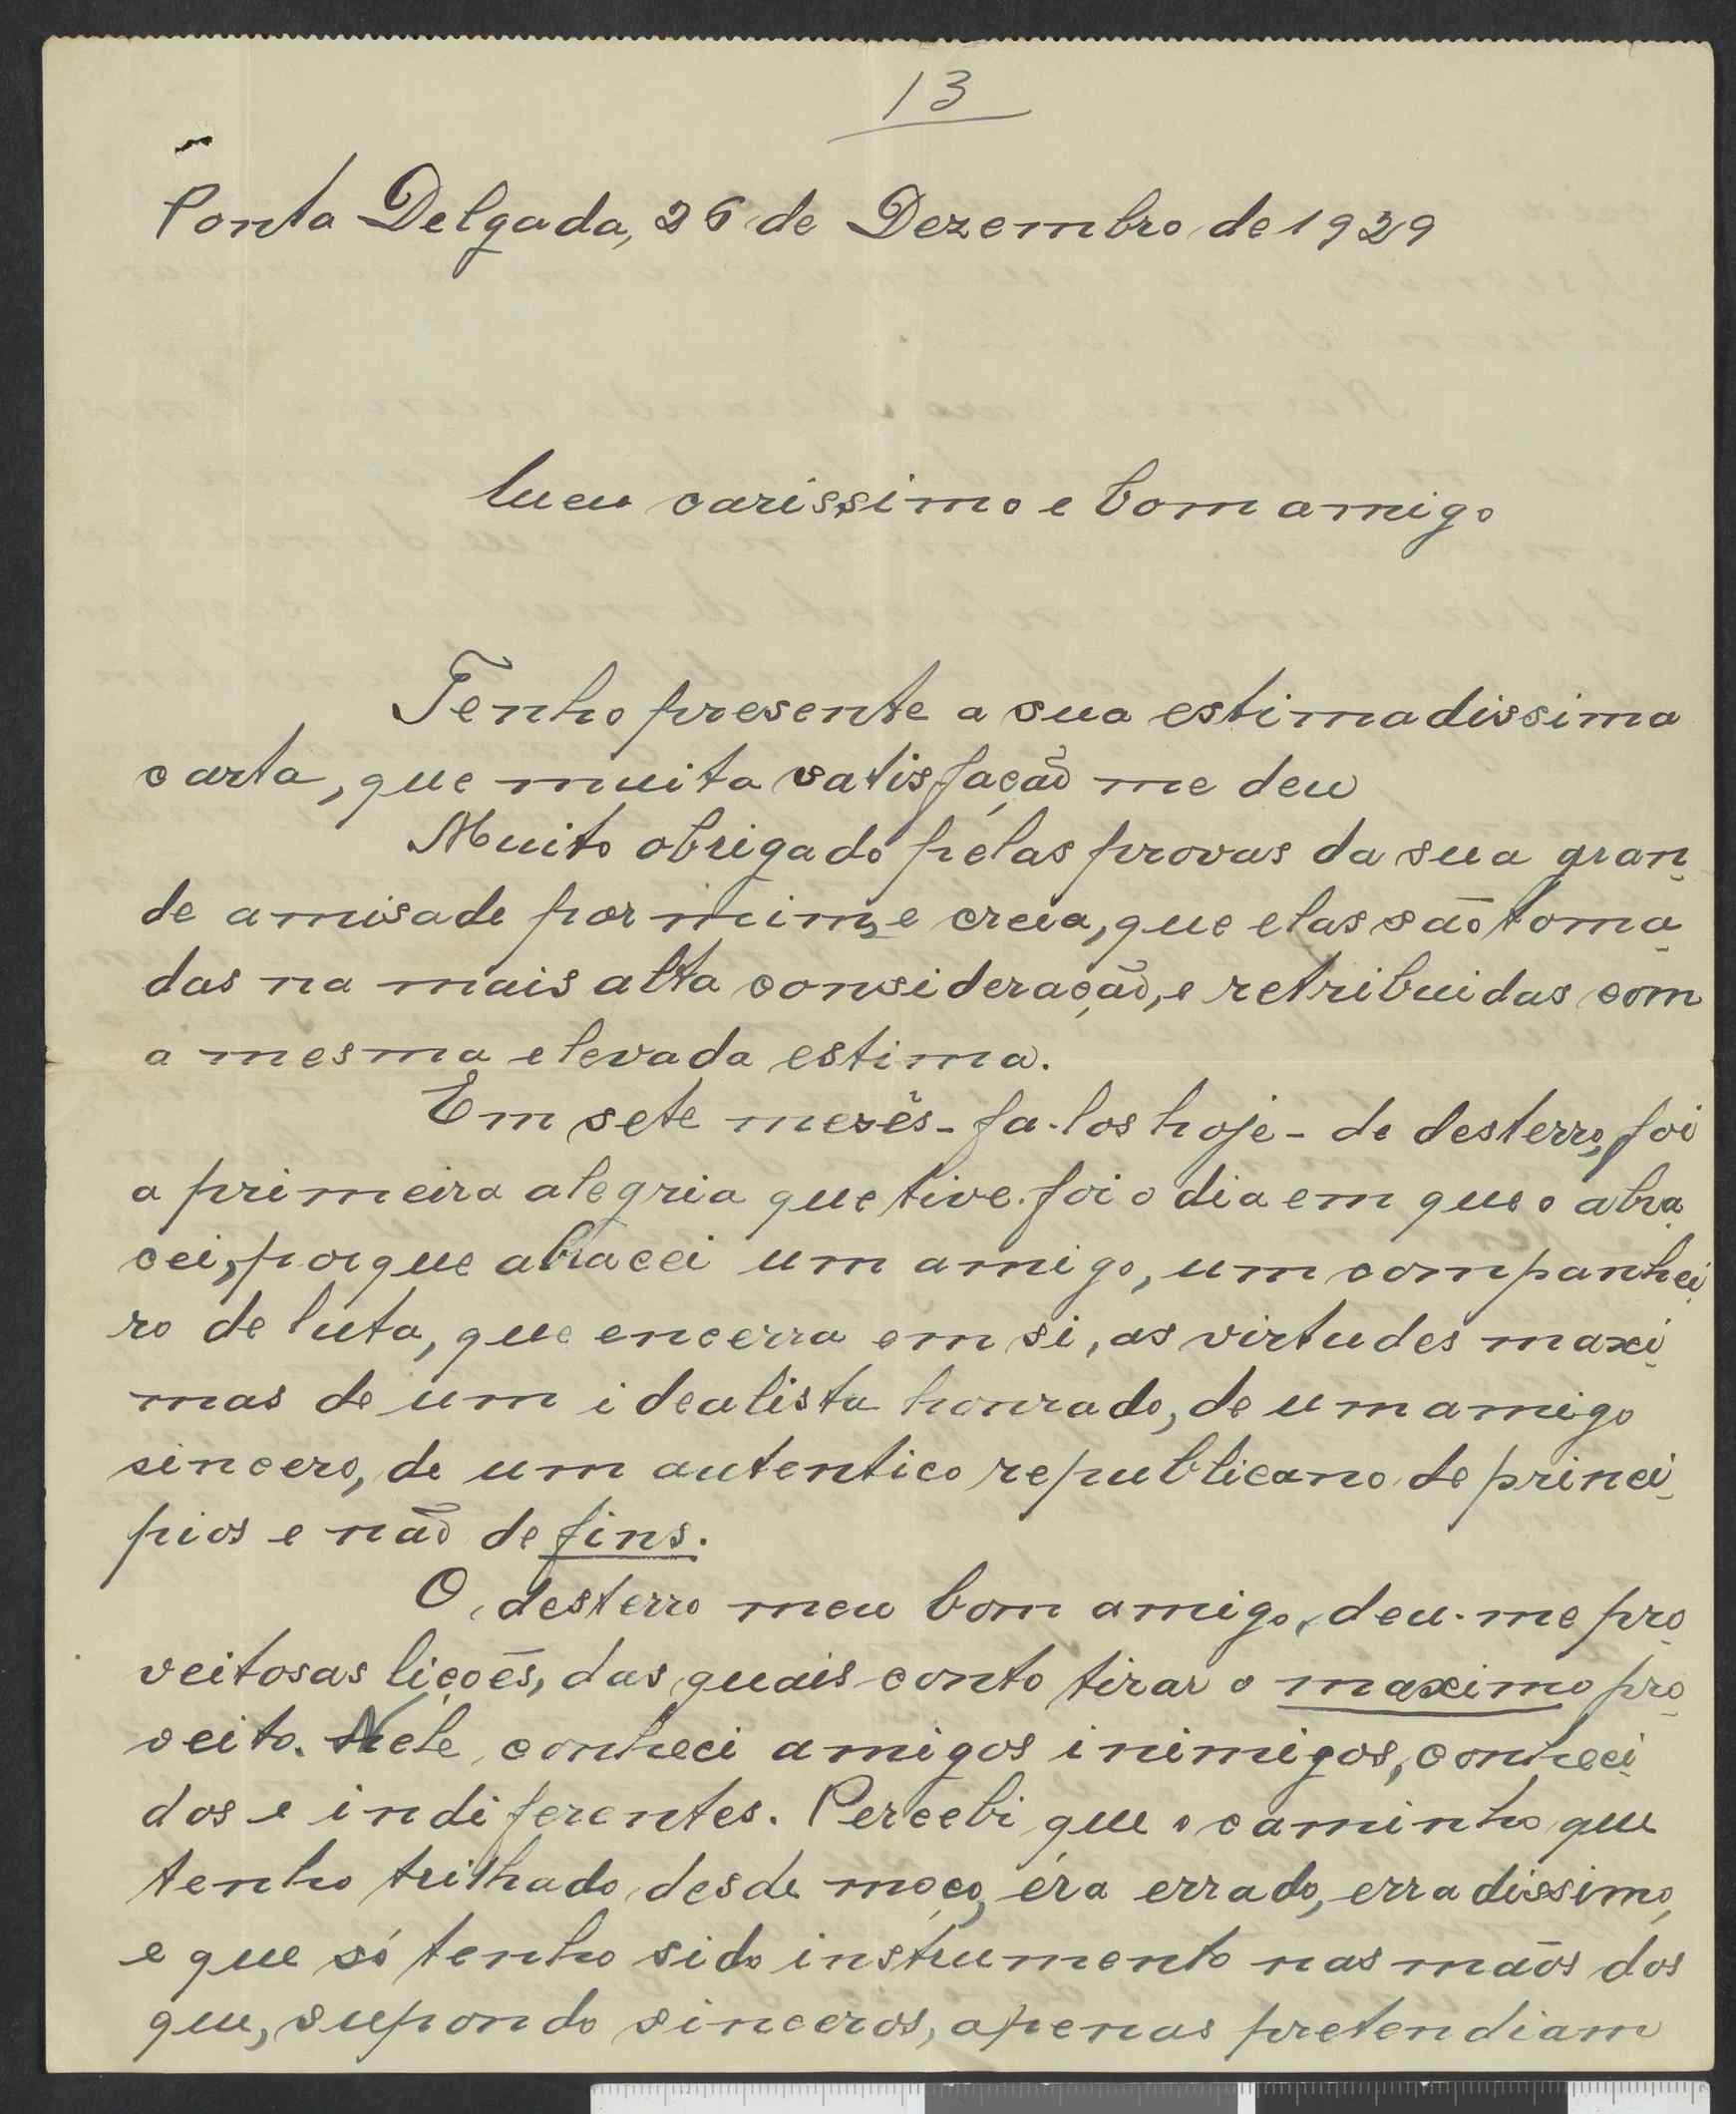 13
Ponta Delgada, 26 de Dezembro de 1929
Meu carissimo e bom amigo
Tenho presente a sua estimadissima
carta, que muita satisfação me deu
Muito obrigado pélas provas da sua gran-
de amisade por mim, e creia, que elas são toma-
das na mais alta consideração, e retribuidas com
a mesma elevada estima.
Em sete mezês - fa-los hoje - de desterro, foi
a primeira alegria que tive. foi o dia em que o abra-
cei, porque abracei um amigo, um companhei-
ro de luta, que encerra em si, as virtudes maxi-
mas de um idealista honrado, de um amigo
sincero, de um autentico republicano de princi-
pios e não de fins.
O desterro meu bom amigo, deu-me pro-
veitosas lições, das quais conto tirar o maximo pro-
veito. Nele conheci amigos inimigos, conheci-
dos e indiferentes. Percebi que o caminho que
tenho trilhado desde moço, éra errado, erradissimo,
e que só tenho sido instrumento nas mãos dos
que, supondo sinceros, apenas pretendiam